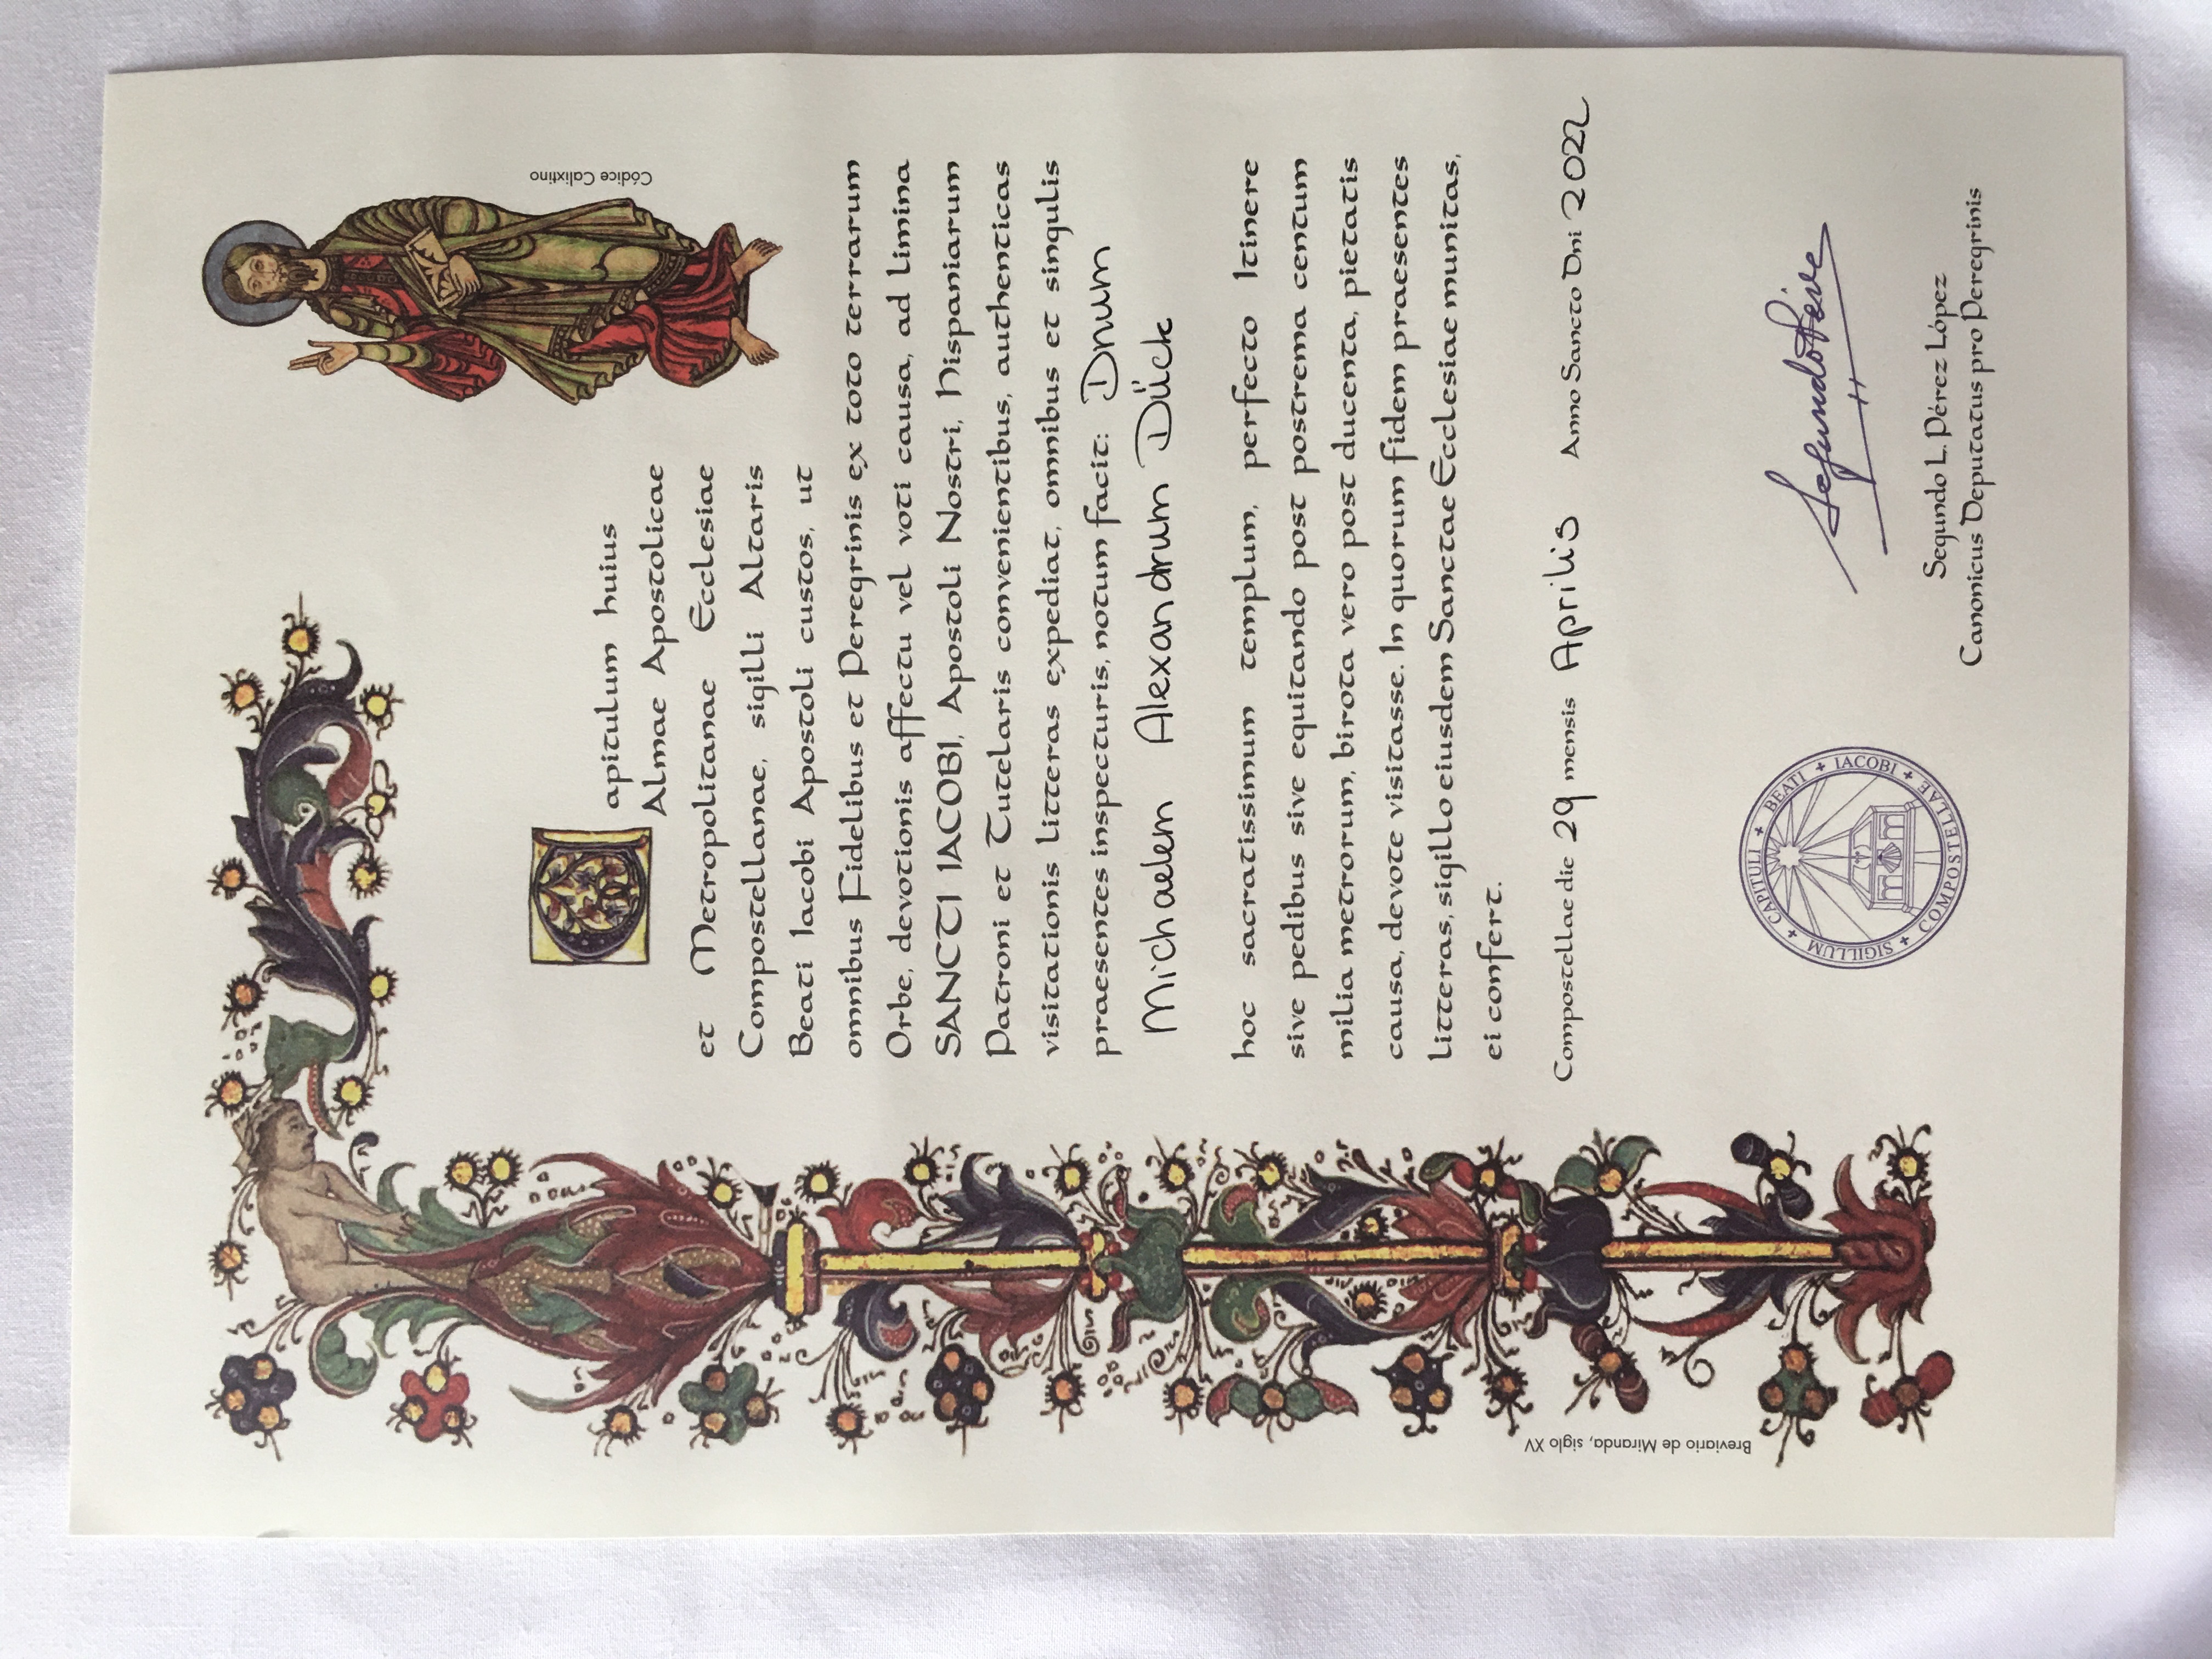 Capitulum huius
Almae Apostolicae
et Metropolitanae Ecclesiae
Compostellanae, sigilli Altaris
Beati Iacobi Apostoli custos, ut
omnibus Fidelibus et Peregrinis ex toto terrarum
Orbe, devotionis affectu vel voti causa, ad limina
SANCTI IACOBI, Apostoli Nostri, Hispaniarum
Patroni et Tutelaris convenientibus, authenticas
visitationis litteras expediat, omnibus et singulis
praesentes inspecturis, notum facit: Dnum
Michaelem Alexandrum Dück
hoc sacratissimum templum, perfecto Itinere
sive pedibus sive equitando post postrema centum
milia metrorum, birota vero post ducenta, pietatis
causa, devote visitasse. In quorum fidem praesentes
litteras, sigillo eiusdem Sanctae Ecclesiae munitas,
ei confert.
Compostellae die 29 mensis Aprilis Anno Sancto Dni 2022
Códice Calixtino
Breviario de Miranda, siglo XV
+ SIGILLUM + CAPITULI + BEATI + IACOBI + COMPOSTELLAE
Segundo Pérez
Segundo L. Pérez López
Canonicus Deputatus pro Peregrinis